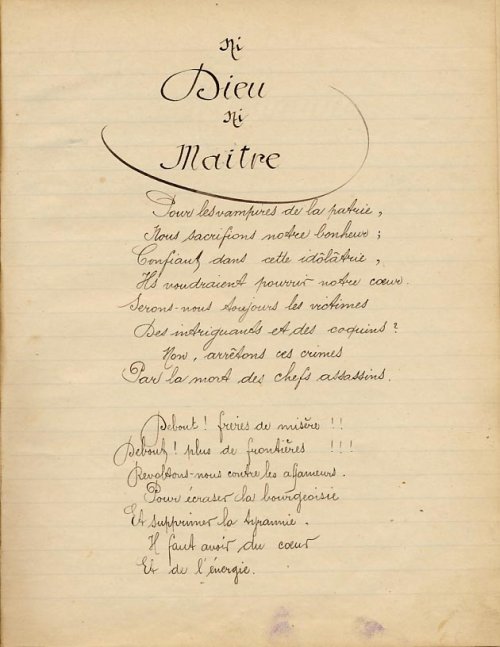 Ni
Dieu
Ni
Maitre
Pour les vampires de la patrie,
Nous sacrifions notre bonheur ;
Confiant dans cette idôlâtrie,
Ils voudraient pourrir notre cœur.
Serons-nous toujours les victimes
Des intriguants et des coquins ?
Non, arrêtons ces crimes
Par la mort des chefs assassins.
Debout ! freres de misère !!
Debout ! plus de frontières !!!
Revoltons-nous contre les affameurs.
Pour écraser la bourgeoisie
Et supprimer la tyrannie.
Il faut avoir du cœur
Et de l'énergie.